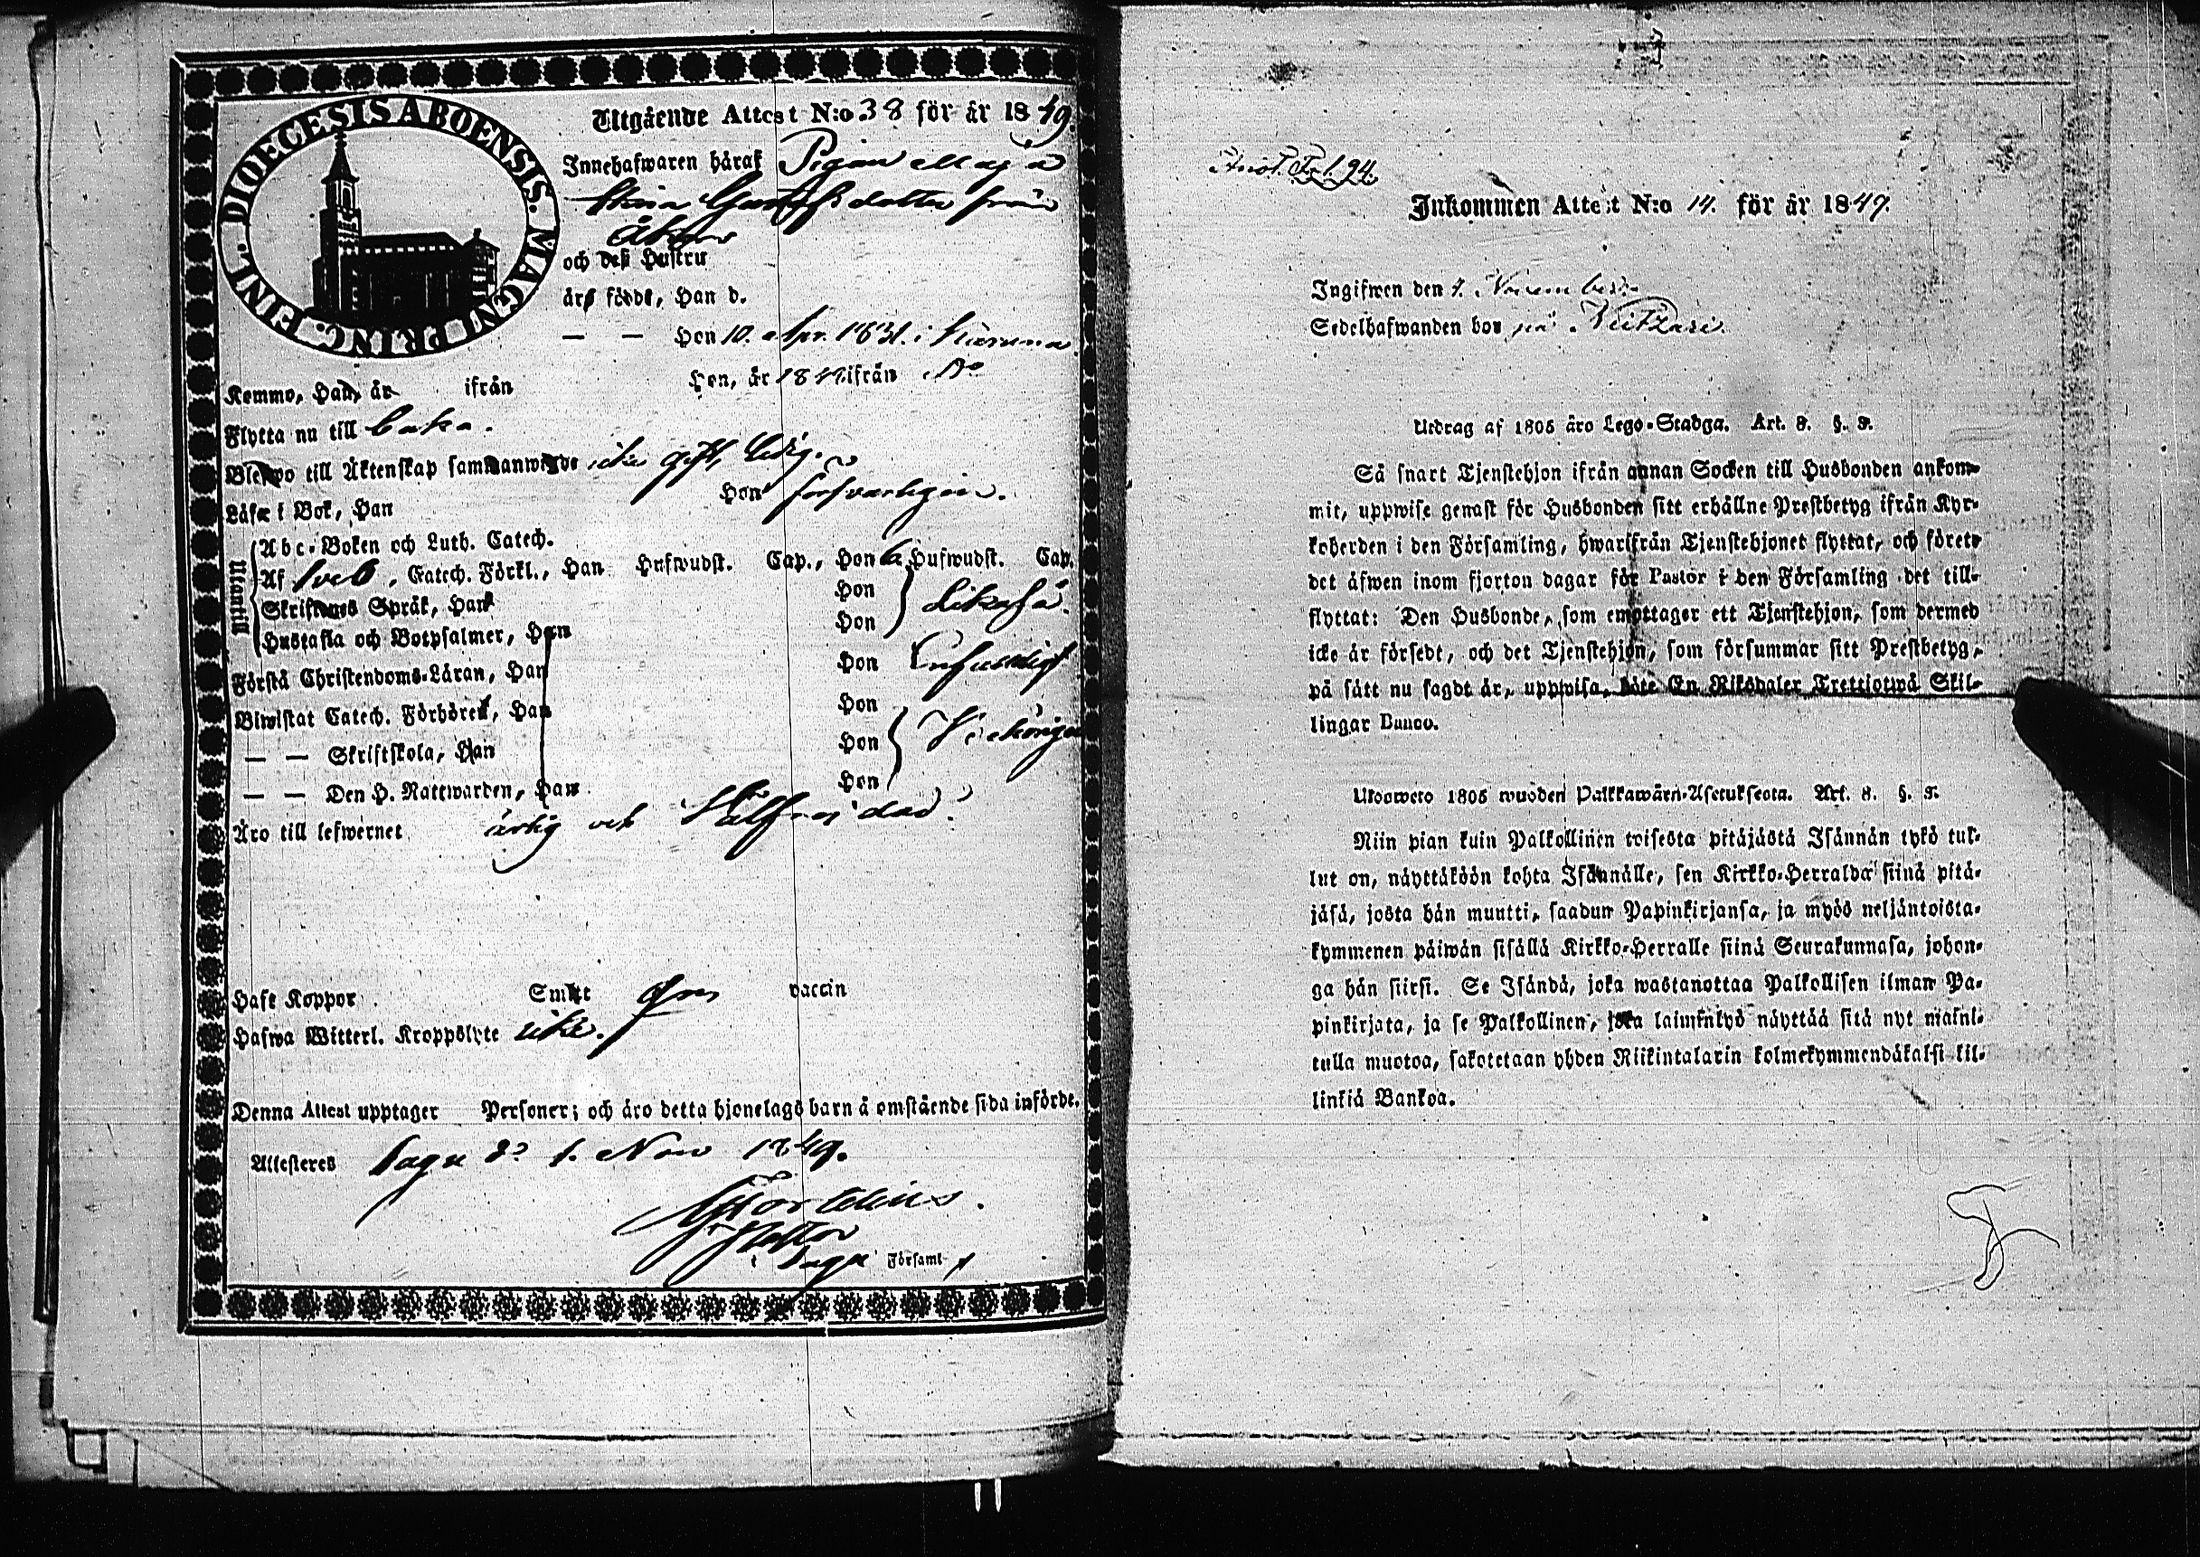 DIOECESIS ABOENSIS. MAGNI PRINC. FINL.
Utgående Attest N:o 38 för år 1849.
Innehafwaren håraf Pigan Maja
Stina Gustafsdotter från
och deß Hustru
åro födde, Han d.
— — Hon 10. Apr. 1831. i
Kommo, Han, år ifrån Hon, år 1849 ifrån
Flytta nu till
Blefwo till Äktenskap sammanwigde icke gift, ledig.
Låse i Bok, Han Hon försvarligen.
Utantill
Abc-Boken och Luth. Catech.
Af Sveb, Catech. Förkl., Han Hufwudst. Cap., Hon 6 Hufwudst. Cap.
Skriftenes Språk, Han Hon
Hustafla och Botpsalmer, Han Hon Likaså.
Förstå Christendoms-Låran, Han Hon Enfaldigt
Biwistat Catech. Förhören, Han Hon
— — Skriftskola, Han Hon Vederbörligen
— — Den H. Nattwarden, Han Hon
Äro till lefwernet årlig och
Haft Koppor Smitt vaccin
Hafwa Witterl. Kroppslyte icke.
Denna Attest upptager Personer; och åro detta hjonelags barn å omstående sida införde.
Attesteres Sagu d. 1. Nov 1849.
Pastor
i Sagu Församl
Annot. Fol. 94.
Inkommen Attest N:o 14. för år 1849.
Ingifwen den 4. November
Sedelhafwanden bor på
Utdrag af 1805 åro Lego-Stadga. Art. 8. §. 9.
Så snart Tjenstehjon ifrån annan Socken till Husbonden ankom-
mit, uppwise genast för Husbonden sitt erhållne Prestbetyg ifrån Kyr-
koherden i den Församling, hwarifrån Tjenstehjonet flyttat, och förete
det åfwen inom fjorton dagar för Pastor i den Församling det till-
flyttat: Den Husbonde, som emottager ett Tjenstehjon, som dermed
icke år försedt, och det Tjenstehjon, som försummar sitt Prestbetyg,
på sått nu sagdt år, uppwisa, böte En Riksdaler Trettiotwå Skil-
lingar Banco.
Ulosweto 1805 wuoden Palkkawåen-Asetuksesta. Art. 8. §. 9.
Niin pian kuin Palkollinen toisesta pitåjåstå Isånnån tykö tul-
lut on, nåyttåköön kohta Isånnålle, sen Kirkko-Herralda siinå pitå-
jåså, josta hån muutti, saadun Papinkirjansa, ja myös neljåntoista-
kymmenen påiwån sisållå Kirkko-Herralle siinå Seurakunnasa, johon-
ga hån siirsi. Se Isåndå, joka wastanottaa Palkollisen ilman Pa-
pinkirjata, ja se Palkollinen, joka laiminlyö nåyttåå sitå nyt mainit-
tulla muotoa, sakotetaan yhden Riikintalarin kolmekymmendåkaksi kil-
linkiå Bankoa.